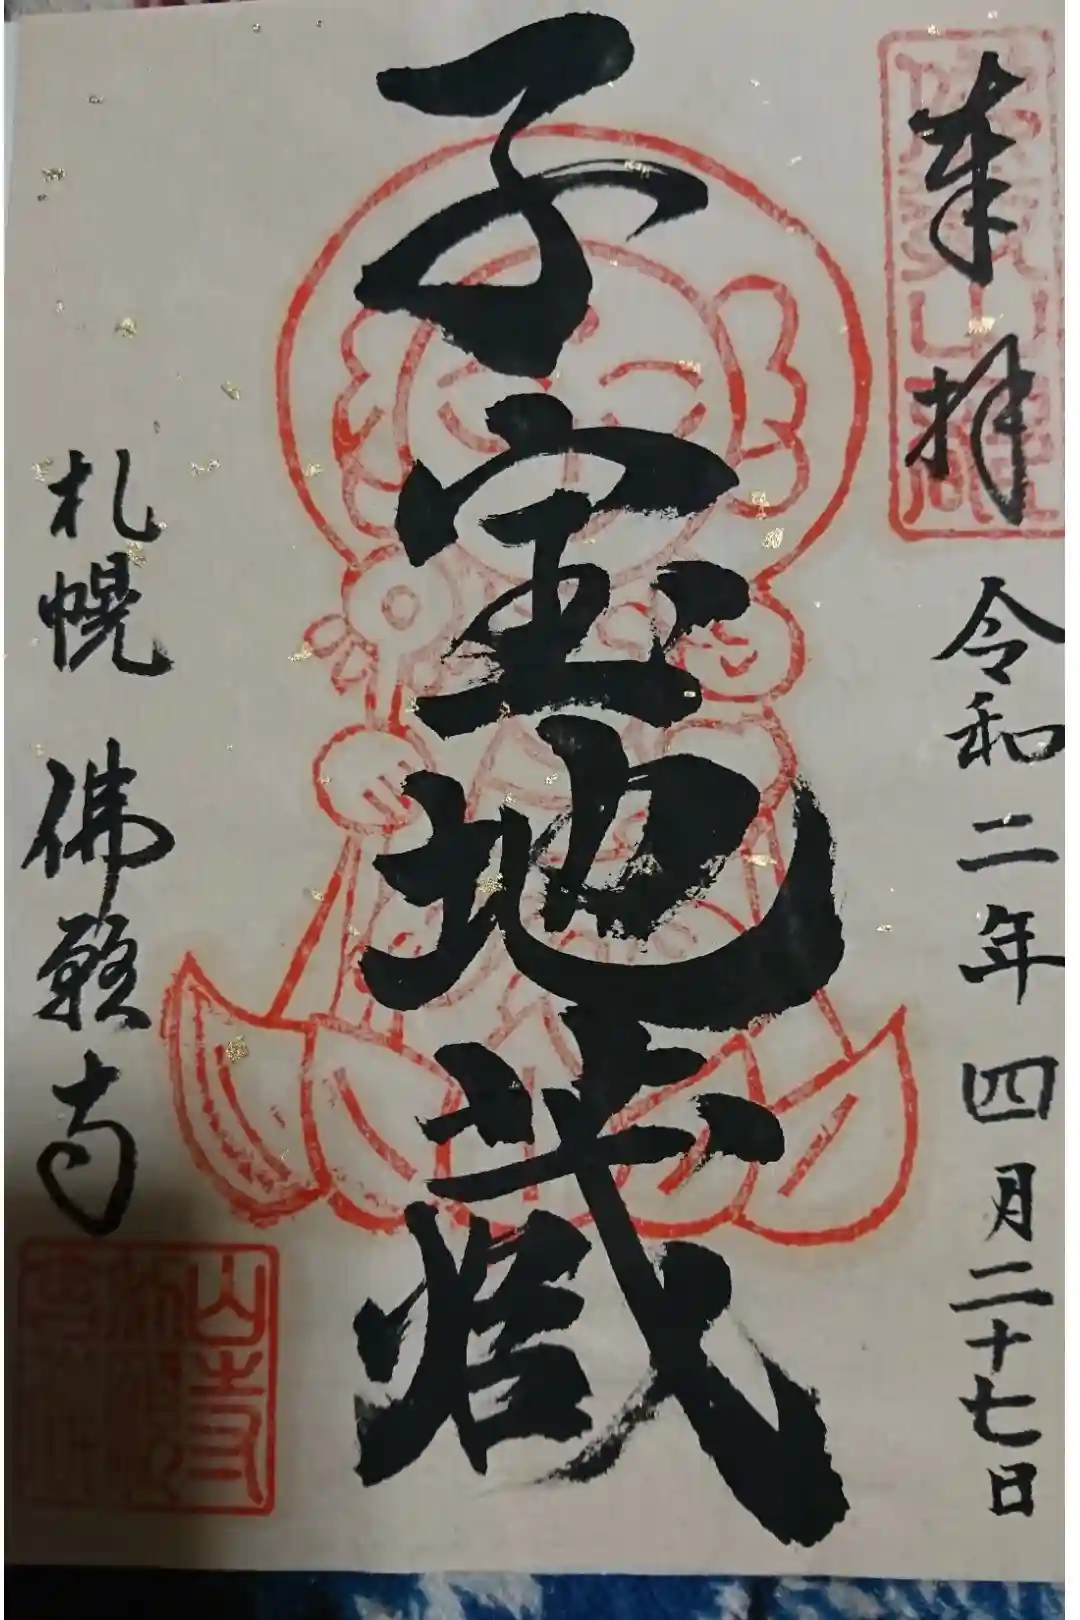 奉拝
令和二年 四月二十七日
子宝地蔵
札幌 佛願寺